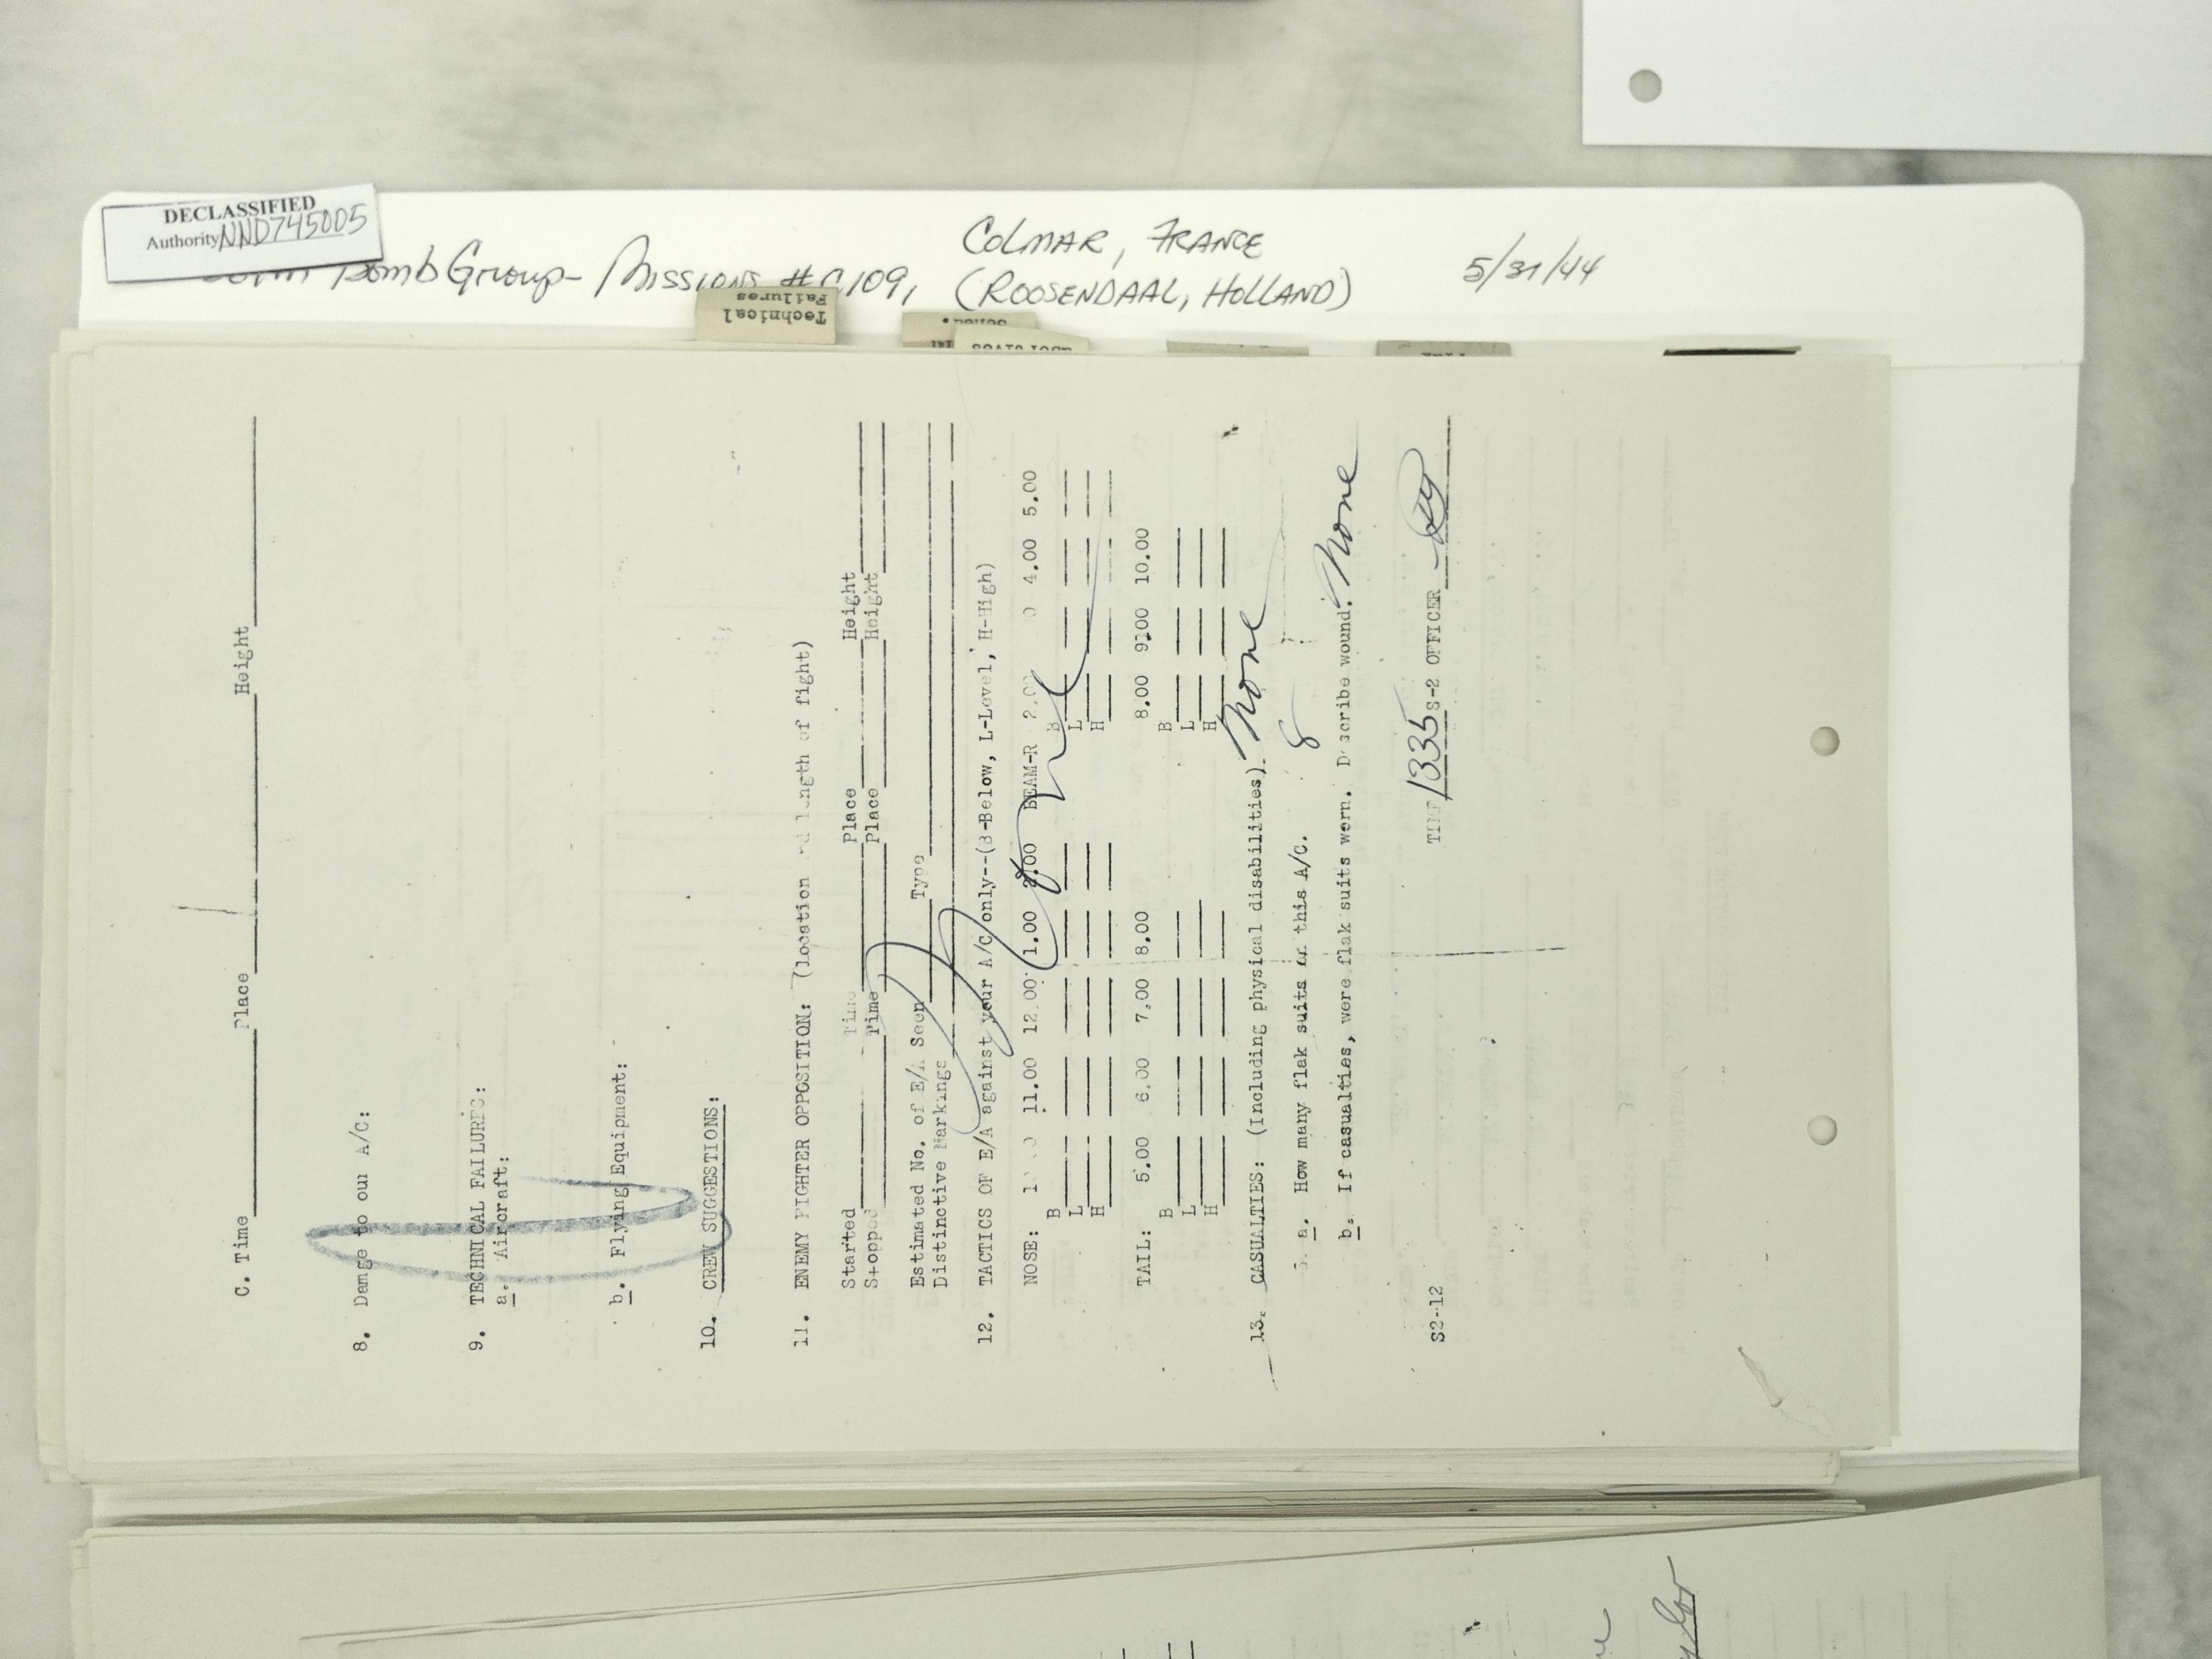 DECLASSIFIED
Authority NND745005
Bomb Group - Missions # 109,
COLMAR, FRANCE
(ROOSENDAAL, HOLLAND)
5/31/44
Technical
Failures
C. Time Place Height
8. Damage to our A/C:
9. TECHNICAL FAILURES:
a. Aircraft:
b. Flying Equipment:
10. CREW SUGGESTIONS:
11. ENEMY FIGHTER OPPOSITION: (location and length of fight)
Started Time Place Height
Stopped Time Place Height
Estimated No. of E/A Seen Type
Distinctive Markings
12. TACTICS OF E/A against your A/C only--(B-Below, L-Level, H-High)
NOSE: 11.00 12.00 1.00 2.00 BEAM-R 2.00 4.00 5.00
B B
L L
H H
TAIL: 5.00 6.00 7.00 8.00 8.00 9:00 10.00
B B
L L
H H
13. CASUALTIES: (Including physical disabilities). None
a. How many flak suits on this A/C. 8
b. If casualties, were flak suits worn. Describe wound. None
S2-12 TIME 1335 S-2 OFFICER